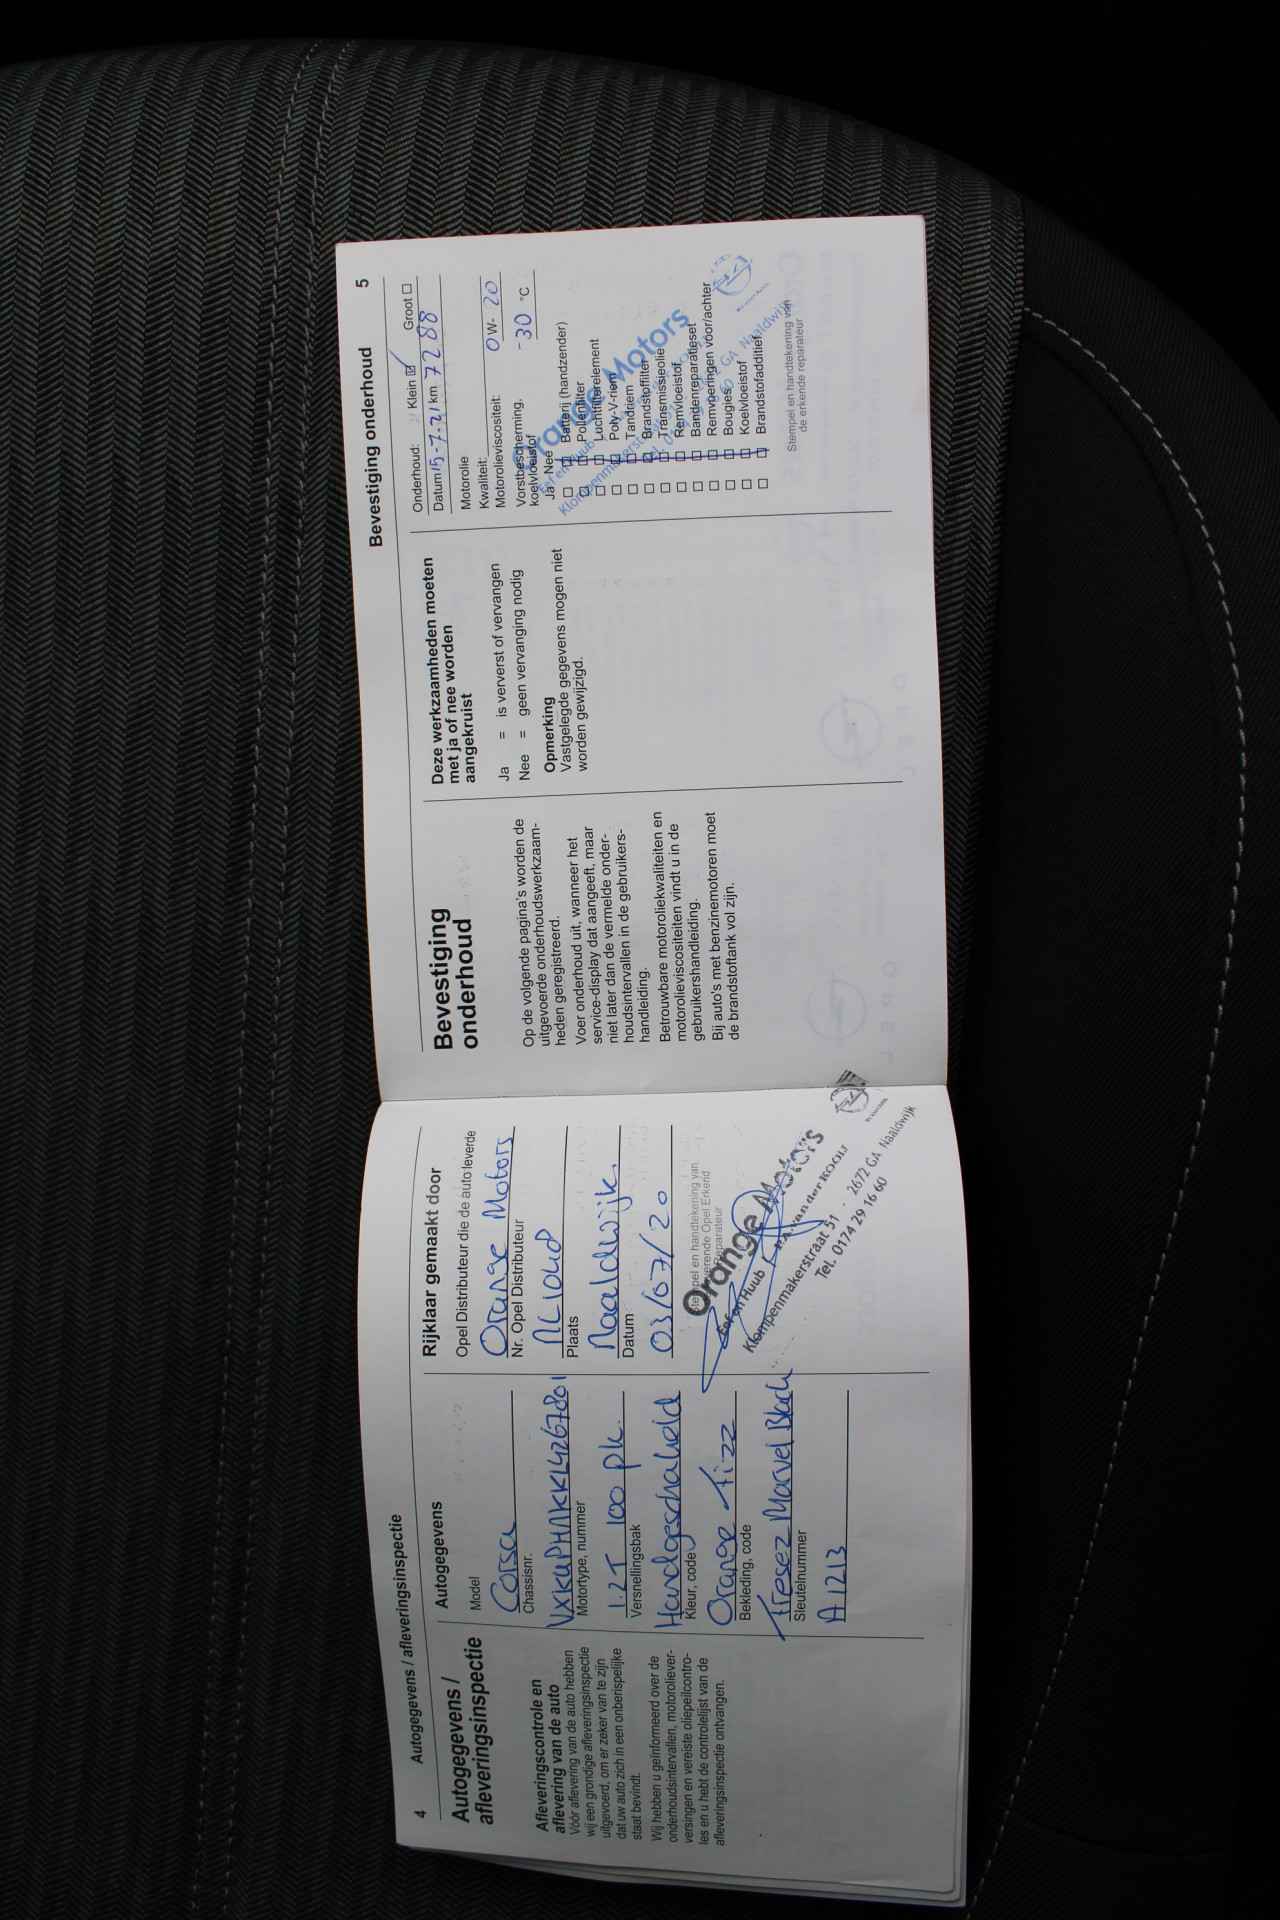 4
Autogegevens / afleveringsinspectie
Autogegevens /
afleveringsinspectie
Afleveringscontrole en
aflevering van de auto
Vóór aflevering van de auto hebben
wij een grondige afleveringsinspectie
uitgevoerd, om er zeker van te zijn
dat uw auto zich in een onberispelijke
staat bevindt.
Wij hebben u geïnformeerd over de
onderhoudsintervallen, motoroliever-
versingen en vereiste oliepeilcontro-
les en u hebt de controlelijst van de
afleveringsinspectie ontvangen.
Autogegevens
Model
Corsa
Chassisnr.
VXKUPHNKKL4267801
Motortype, nummer
1.2T 100 pk.
Versnellingsbak
Handgeschakeld
Kleur, code
Orange Fizz
Bekleding, code
Marvel Black
Sleutelnummer
A1213
Rijklaar gemaakt door
Opel Distributeur die de auto leverde
Orange Motors
Nr. Opel Distributeur
Plaats
Naaldwijk
Datum
03/07/20
Stempel en handtekening van
leverende Opel Erkend
Reparateur
Orange Motors
Huub
v.d. van der KOOIJ
Klompenmakerstraat 51 - 2672 GA Naaldwijk
Tel. 0174 29 16 60
Bevestiging onderhoud
5
Bevestiging
onderhoud
Op de volgende pagina's worden de
uitgevoerde onderhoudswerkzaam-
heden geregistreerd.
Voer onderhoud uit, wanneer het
service-display dat aangeeft, maar
niet later dan de vermelde onder-
houdsintervallen in de gebruikers-
handleiding.
Betrouwbare motoroliekwaliteiten en
motorolieviscositeiten vindt u in de
gebruikershandleiding.
Bij auto's met benzinemotoren moet
de brandstoftank vol zijn.
Deze werkzaamheden moeten
met ja of nee worden
aangekruist
Ja = is ververst of vervangen
Nee = geen vervanging nodig
Opmerking
Vastgelegde gegevens mogen niet
worden gewijzigd.
Onderhoud: Klein Groot
Datum 15-7-21 km 7288
Motorolie
Kwaliteit:
Motorolieviscositeit: 0 W- 20
Vorstbescherming,
koelvloeistof -30 °C
Ja Nee
Batterij (handzender)
Pollenfilter
Luchtfilterelement
Poly-V-riem
Tandriem
Brandstoffilter
Transmissieolie
Remvloeistof
Bandenreparatieset
Remvoeringen voor/achter
Bougies
Koelvloeistof
Brandstofadditief
Orange Motors
Stempel en handtekening van
de erkende reparateur